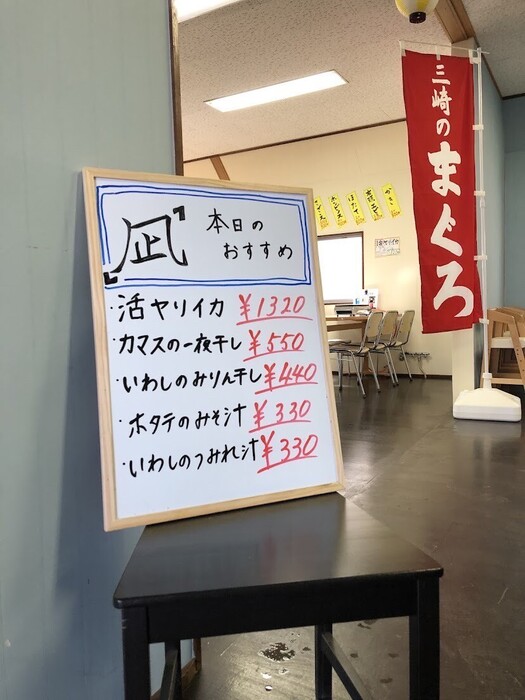 凪
本日の
おすすめ
・活ヤリイカ ¥1320
・カマスの一夜干し ¥550
・いわしのみりん干し ¥440
・ホタテのみそ汁 ¥330
・いわしのつみれ汁 ¥330
三崎のまぐろ